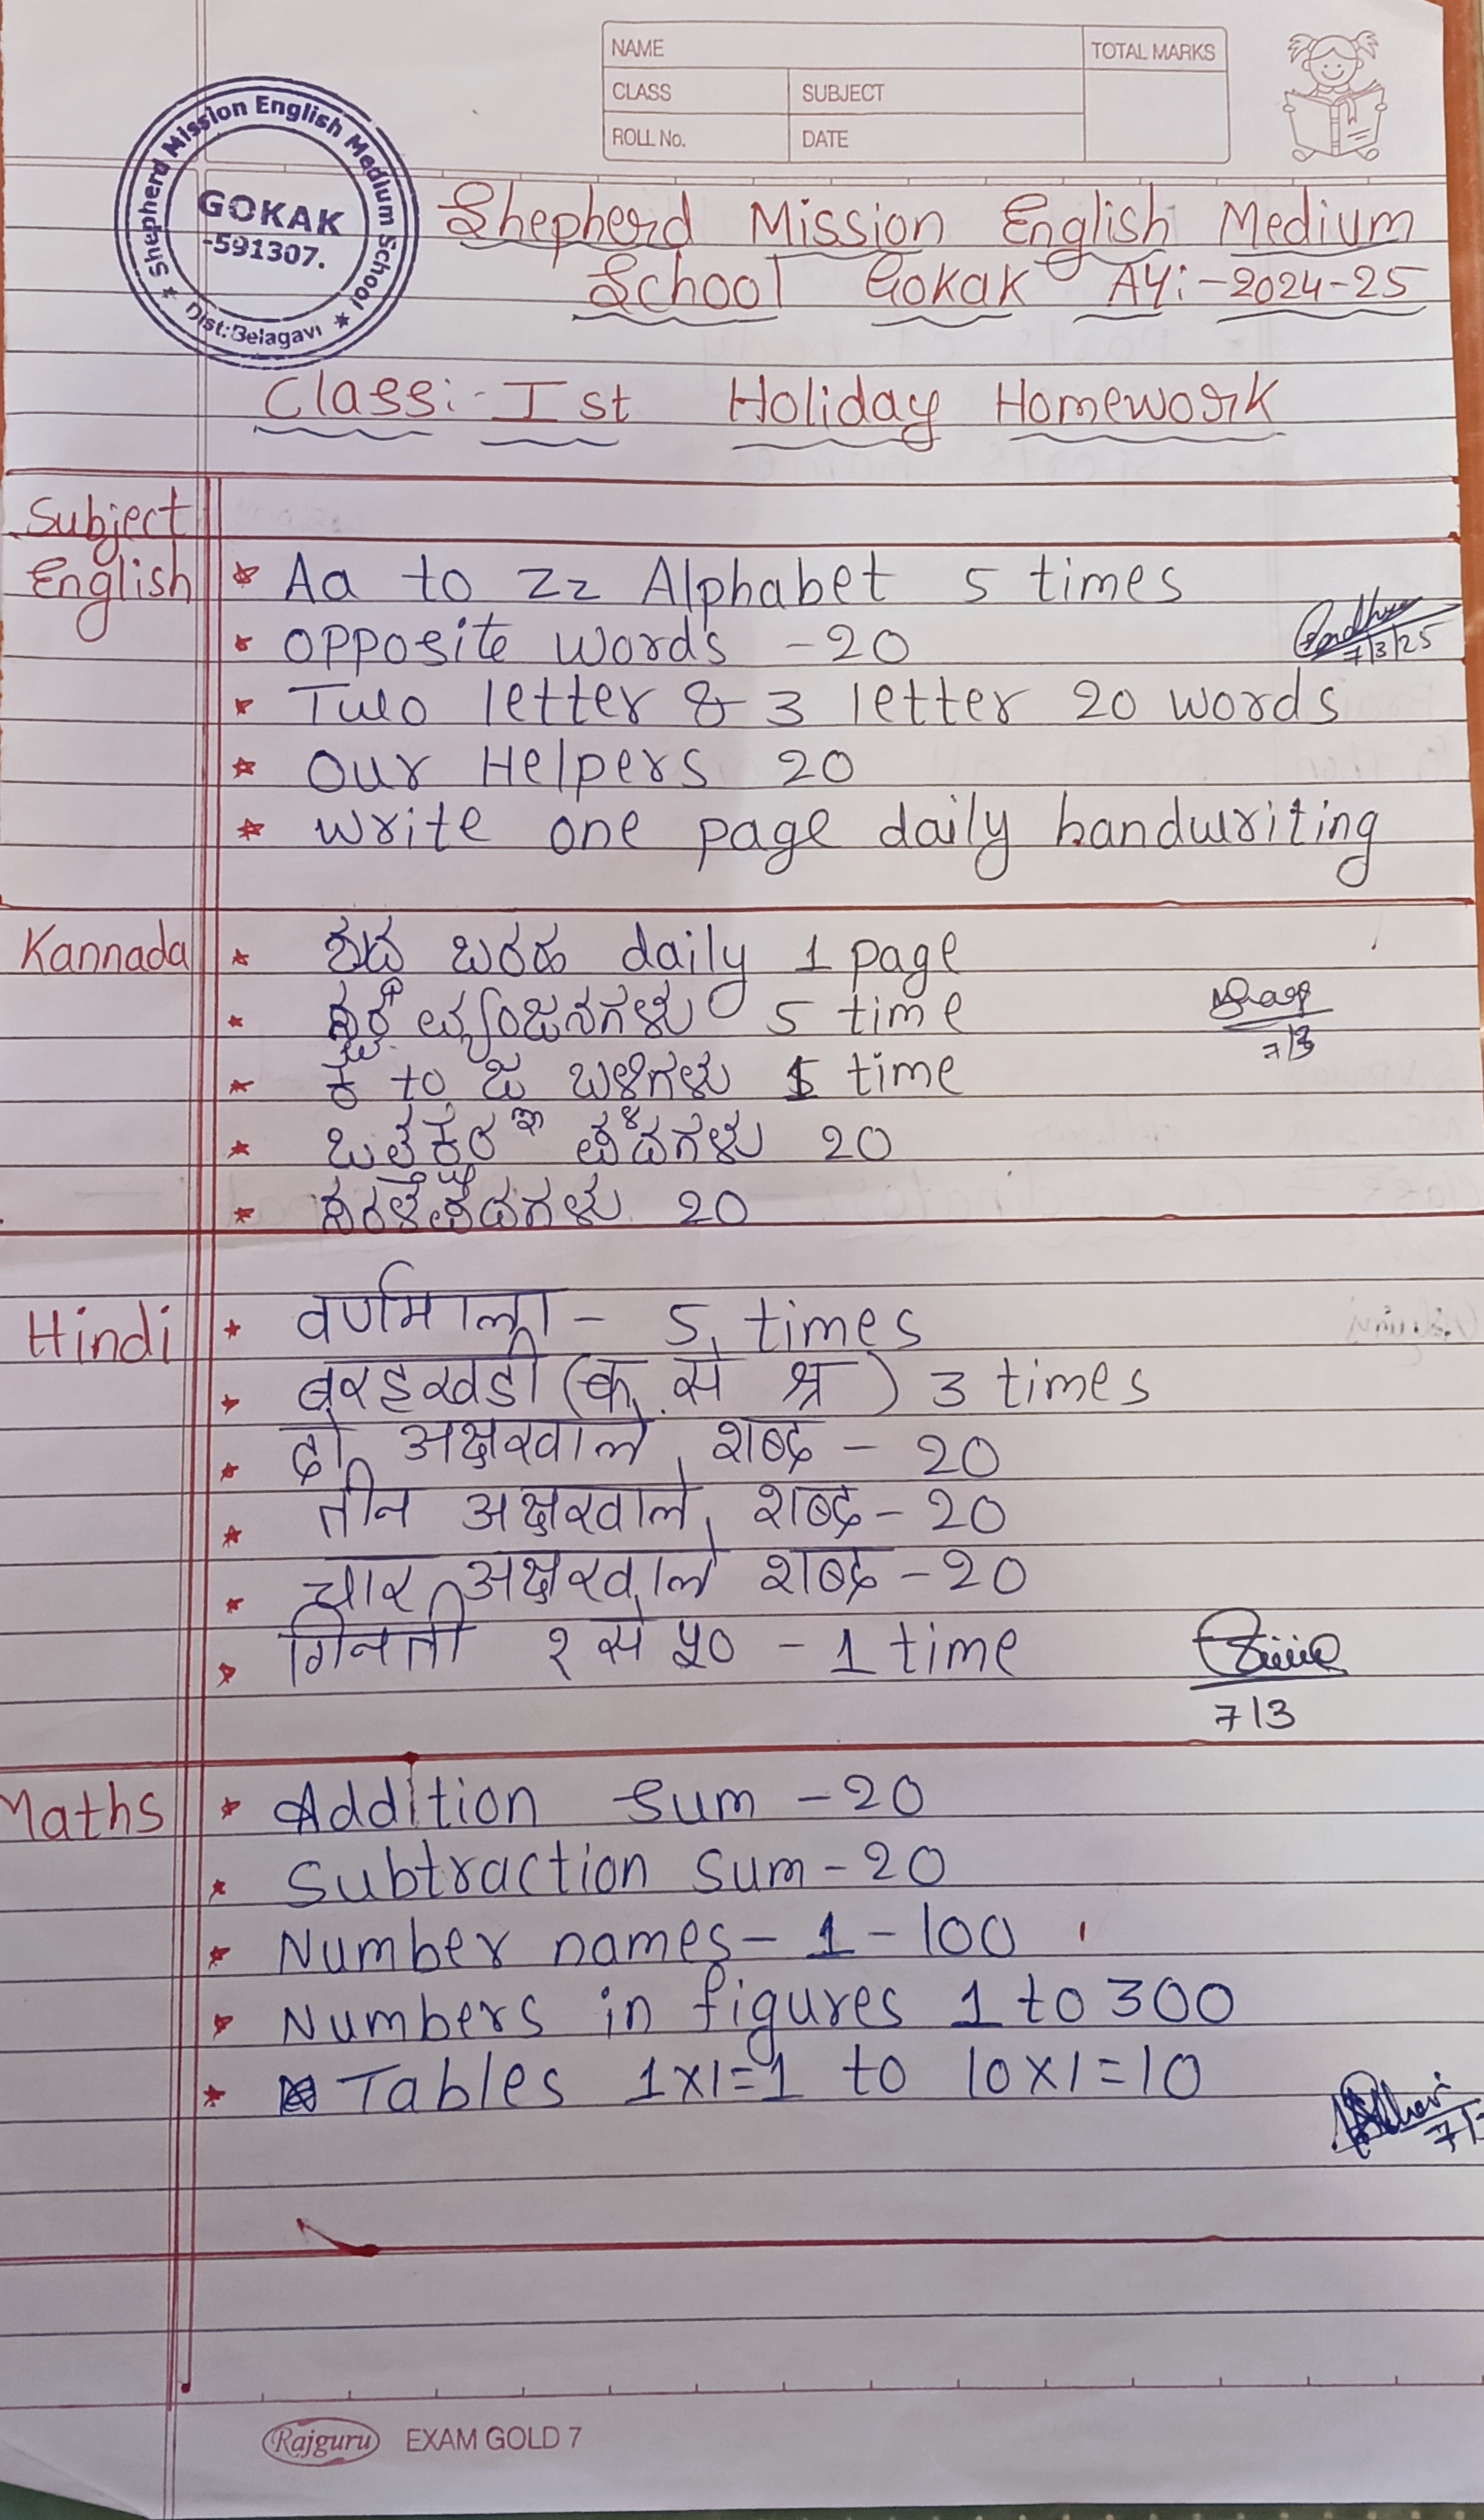 NAME
TOTAL MARKS
CLASS
SUBJECT
ROLL No.
DATE
Shepherd Mission English Medium School
GOKAK
-591307.
Dist:Belagavi
Shepherd Mission English Medium
School Gokak AY:-2024-25
Class:- Ist Holiday Homework
Subject
English
Aa to Zz Alphabet 5 times
opposite words -20
7/3/25
Two letter & 3 letter 20 words
Our Helpers 20
Write one page daily handwriting
Kannada
ಶುದ್ಧ ಬರಹ daily 1 page
ವ್ಯಂಜನಗಳು 5 time
7/3
ಕ to ಜ ಬಳಿಗಳು 1 time
ಪದಗಳು 20
ಸರಳ ಪದಗಳು 20
Hindi
वर्णमाला - 5 times
बरहखडी (क से श्र) 3 times
दो अक्षरवाले शब्द - 20
तीन अक्षरवाले शब्द - 20
चार अक्षरवाले शब्द - 20
गिनती १ से ५० - 1 time
7/3
Maths
Addition Sum - 20
Subtraction Sum - 20
Number names - 1 - 100
Numbers in figures 1 to 300
Tables 1x1=1 to 10x1=10
Rajguru EXAM GOLD 7